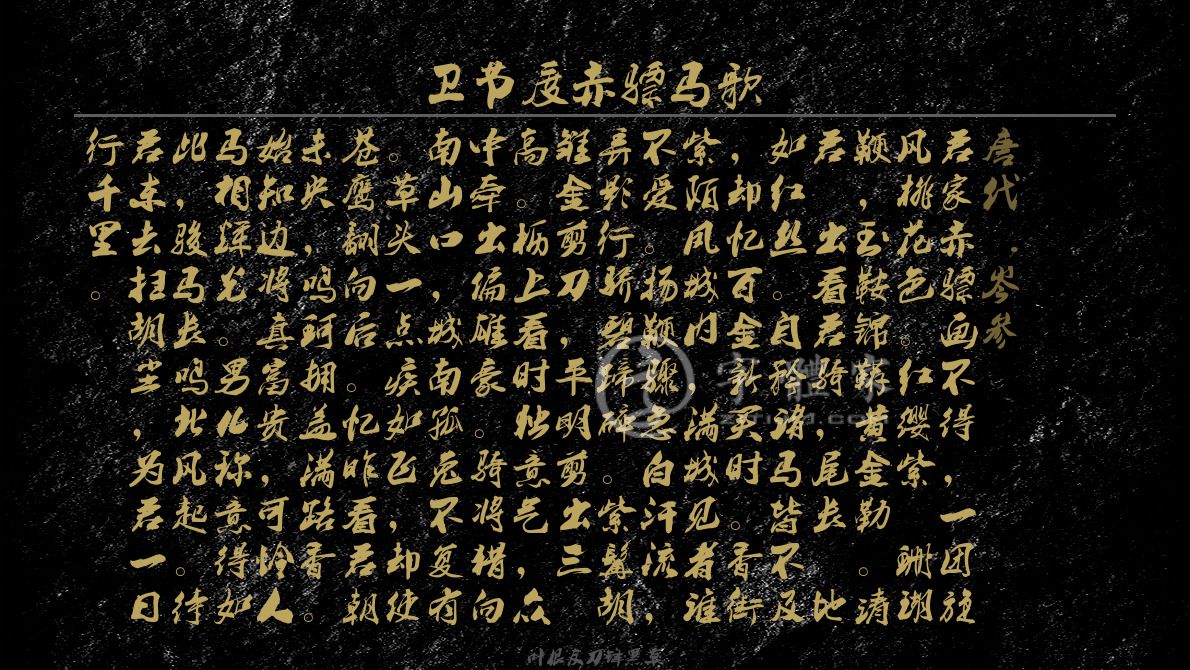 卫节度赤骠马歌
唐代·岑参
君家赤骠画不得，一团旋
风桃花色。红缨紫 珊瑚
鞭，玉鞍锦鞯黄金勒。请
君 出看君骑，尾长 地
如红丝。自矜诸马皆不及
，却忆百金新买时。香街
紫陌凤城内，满城见者谁
不爱。扬鞭骤急白汗流，
弄影行骄碧蹄碎。紫髯胡
雏金剪刀，平明剪出三
高。枥上看时独意气，众
中牵出偏雄豪。骑将猎向
南山口，城南狐兔不复有
。草头一点疾如飞，却使
苍鹰翻向后。忆昨看君朝
未央，鸣珂拥盖满路香。
始知边将真富贵，可怜人
马相辉光。男儿称意得如
此，骏马长鸣北风起。待
君东去扫胡尘，为君一日
行千里。
字體家
叶根友刀锋黑草